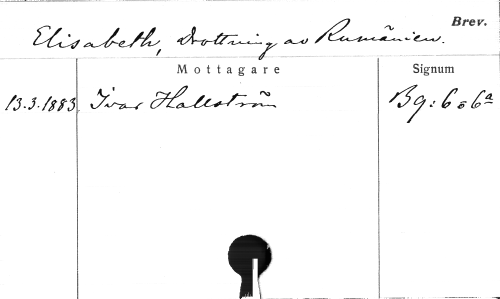 Brev.
Elisabeth, Drottning av Rumänien.
Mottagare Signum
13.3.1883. Ivar Hallström Bq:6